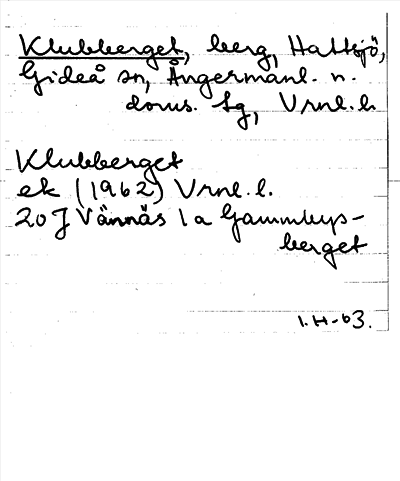 Klubberget, berg, Hattsjö,
Gideå sn, Ångermanl. n.
doms. sg, Vrnl. l.
Klubberget
ek (1962) Vrnl. l.
20J Vännäs 1 a Gammbyps-
berget
I.H-63.